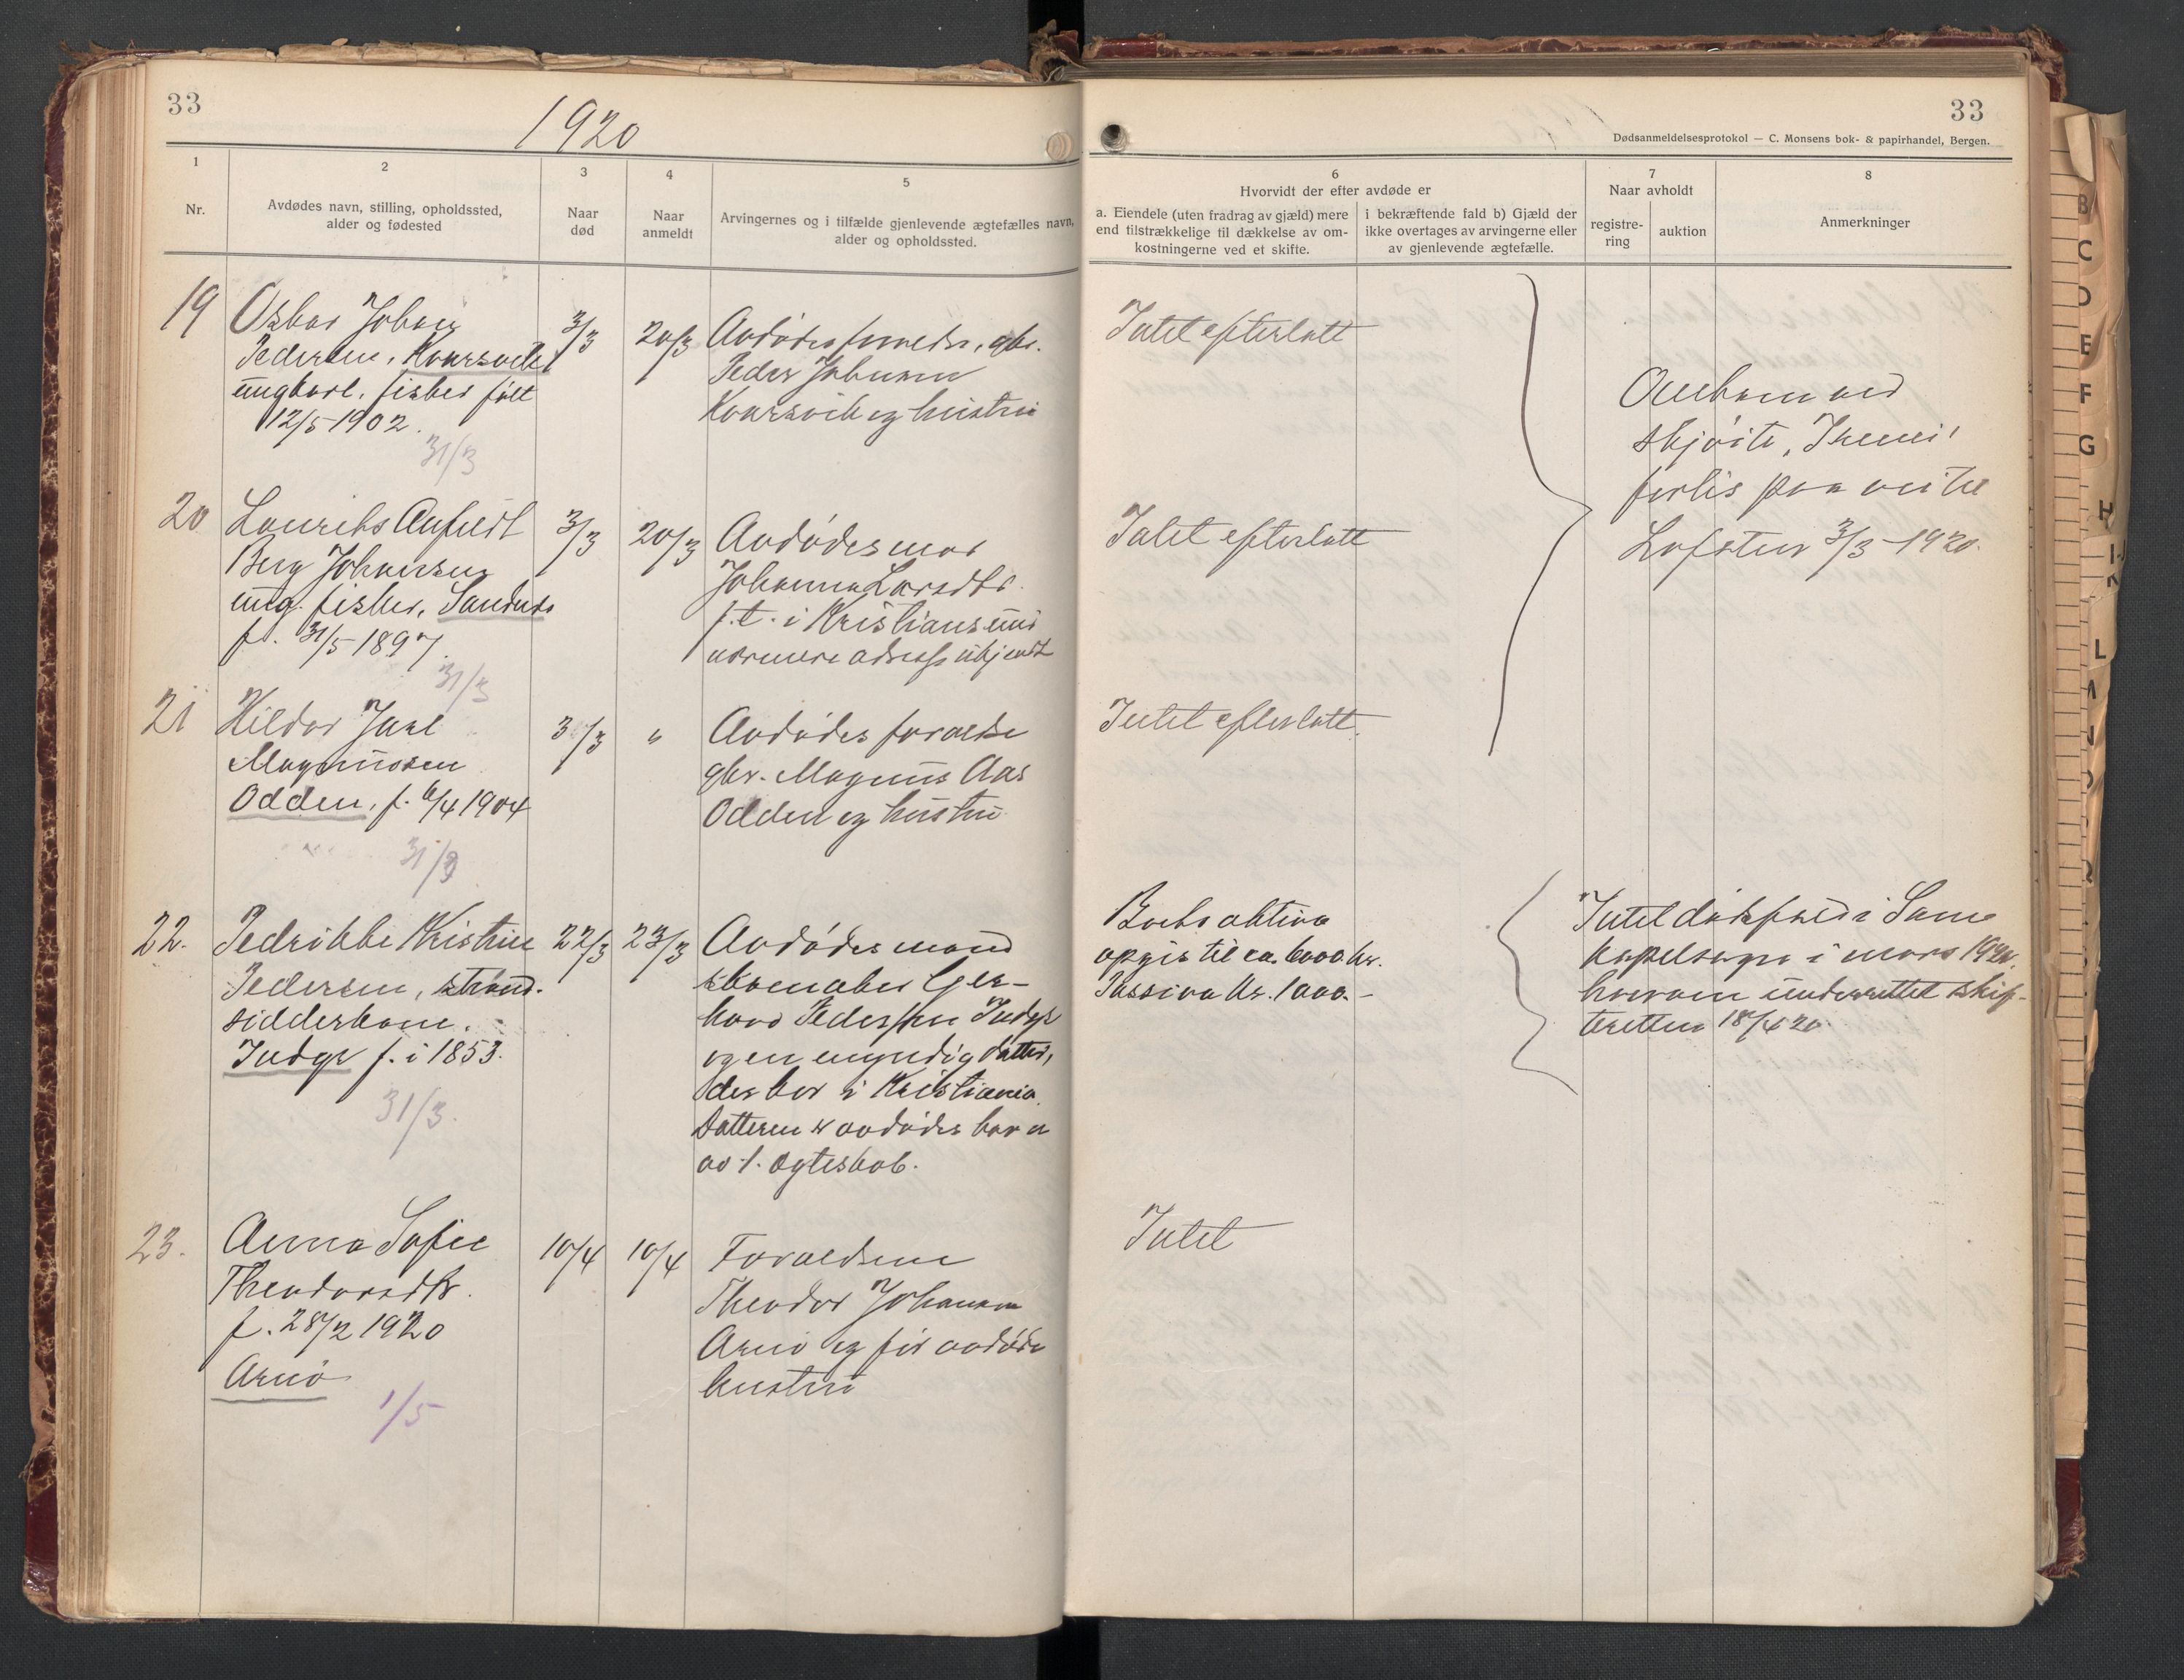 33
1920
1
2
3
4
5
Nr.
Avdødes navn, stilling, opholdssted,
alder og fødested
Naar
død
Naar
anmeldt
Arvingernes og i tilfælde gjenlevende ægtefælles navn,
alder og opholdssted.
33
Dødsanmeldelsesprotokol — C. Monsens bok- & papirhandel, Bergen.
6
Hvorvidt der efter avdøde er
a. Eiendele (uten fradrag av gjæld) mere
end tilstrækkelige til dækkelse av om-
kostningerne ved et skifte.
i bekræftende fald b) Gjæld der
ikke overtages av arvingerne eller
av gjenlevende ægtefælle.
7
Naar avholdt
registre-
ring
auktion
8
Anmerkninger
19
Oskar Johan
Pedersen, Kvarsvik
ungkarl, fisker født
12/5 1902.
31/3
3/3
20/3
Avdødes forældre, gbr.
Peder Johansen
Kvarsvik og hustru
Intet efterlatt
Omkom ved
skjøite
forlis paa vei til
Lofoten 3/3-1920.
20
Laurits Anfeldt
Berg Johansen
ung. fisker, Sandnes
f. 31/5-1897.
31/3
3/3
20/3
Avdødes mor
Johanna Larsdtr.
f.t. i Kristianssund
nærmere adresse ukjendt
Intet efterlatt
21
Hildor Jarl
Magnussen
Odden, f. 6/4 1904
31/3
3/3
"
Avdødes forældre
gbr. Magnus Aas
Odden og hustru
Intet efterlatt.
22.
Pedrikke Kristine
Pedersen, strand-
sidderkone.
Indgr f. i 1853.
31/3.
22/3
23/3
Avdødes mand
skomaker Ger-
hard Pedersen Indgr
og en myndig datter,
der bor i Kristiania.
Datteren er avdødes barn
av 1. ægteskab.
Boets aktiva
opgis til ca. 6000 kr.
Passiva kr. 1000.-
Intet dødsfald i
kapelsogn i mars 1920,
hvorom underrettet skif-
teretten 18/4 20.
23.
Anna Sofie
Theodorsdtr.
f. 28/2 1920
Arnø
1/5
10/4
10/4
Forældrene
Theodor Johansen
Arnø og før avdøde
hustru
Intet
B
C
D
E
F
G
H
I-J
K
L